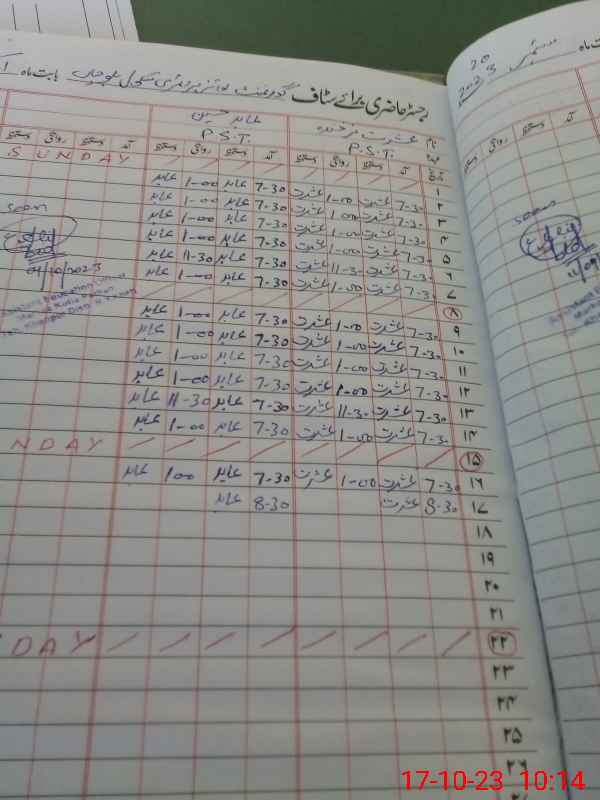 رجسٹر حاضری برائے سٹاف گورنمنٹ بوائز پرائمری سکول بابت ماہ
ستمبر 2023
نام عشرت فرخندہ عابد حسین
عہدہ P.S.T. P.S.T.
تاریخ آمد دستخط روانگی دستخط آمد دستخط روانگی دستخط
۱ SUNDAY
۲ 7-30 عشرت 1-00 عشرت 7-30 عابد 1-00 عابد
۳ 7-30 عشرت 1-00 عشرت 7-30 عابد 1-00 عابد
۴ 7-30 عشرت 1-00 عشرت 7-30 عابد 1-00 عابد
۵ 7-30 عشرت 1-00 عشرت 7-30 عابد 1-00 عابد
۶ 7-30 عشرت 11-30 عشرت 7-30 عابد 11-30 عابد
۷ 7-30 عشرت 1-00 عشرت 7-30 عابد 1-00 عابد
۸
۹ 7-30 عشرت 1-00 عشرت 7-30 عابد 1-00 عابد
۱۰ 7-30 عشرت 1-00 عشرت 7-30 عابد 1-00 عابد
۱۱ 7-30 عشرت 1-00 عشرت 7-30 عابد 1-00 عابد
۱۲ 7-30 عشرت 1-00 عشرت 7-30 عابد 1-00 عابد
۱۳ 7-30 عشرت 11-30 عشرت 7-30 عابد 11-30 عابد
۱۴ 7-30 عشرت 1-00 عشرت 7-30 عابد 1-00 عابد
۱۵ NDAY
۱۶ 7-30 عشرت 1-00 عشرت 7-30 عابد 1-00 عابد
۱۷ 8-30 عشرت 8-30 عابد
۱۸
۱۹
۲۰
۲۱
۲۲ DAY
۲۳
۲۴
۲۵
۲۶
seen
seen
17-10-23 10:14